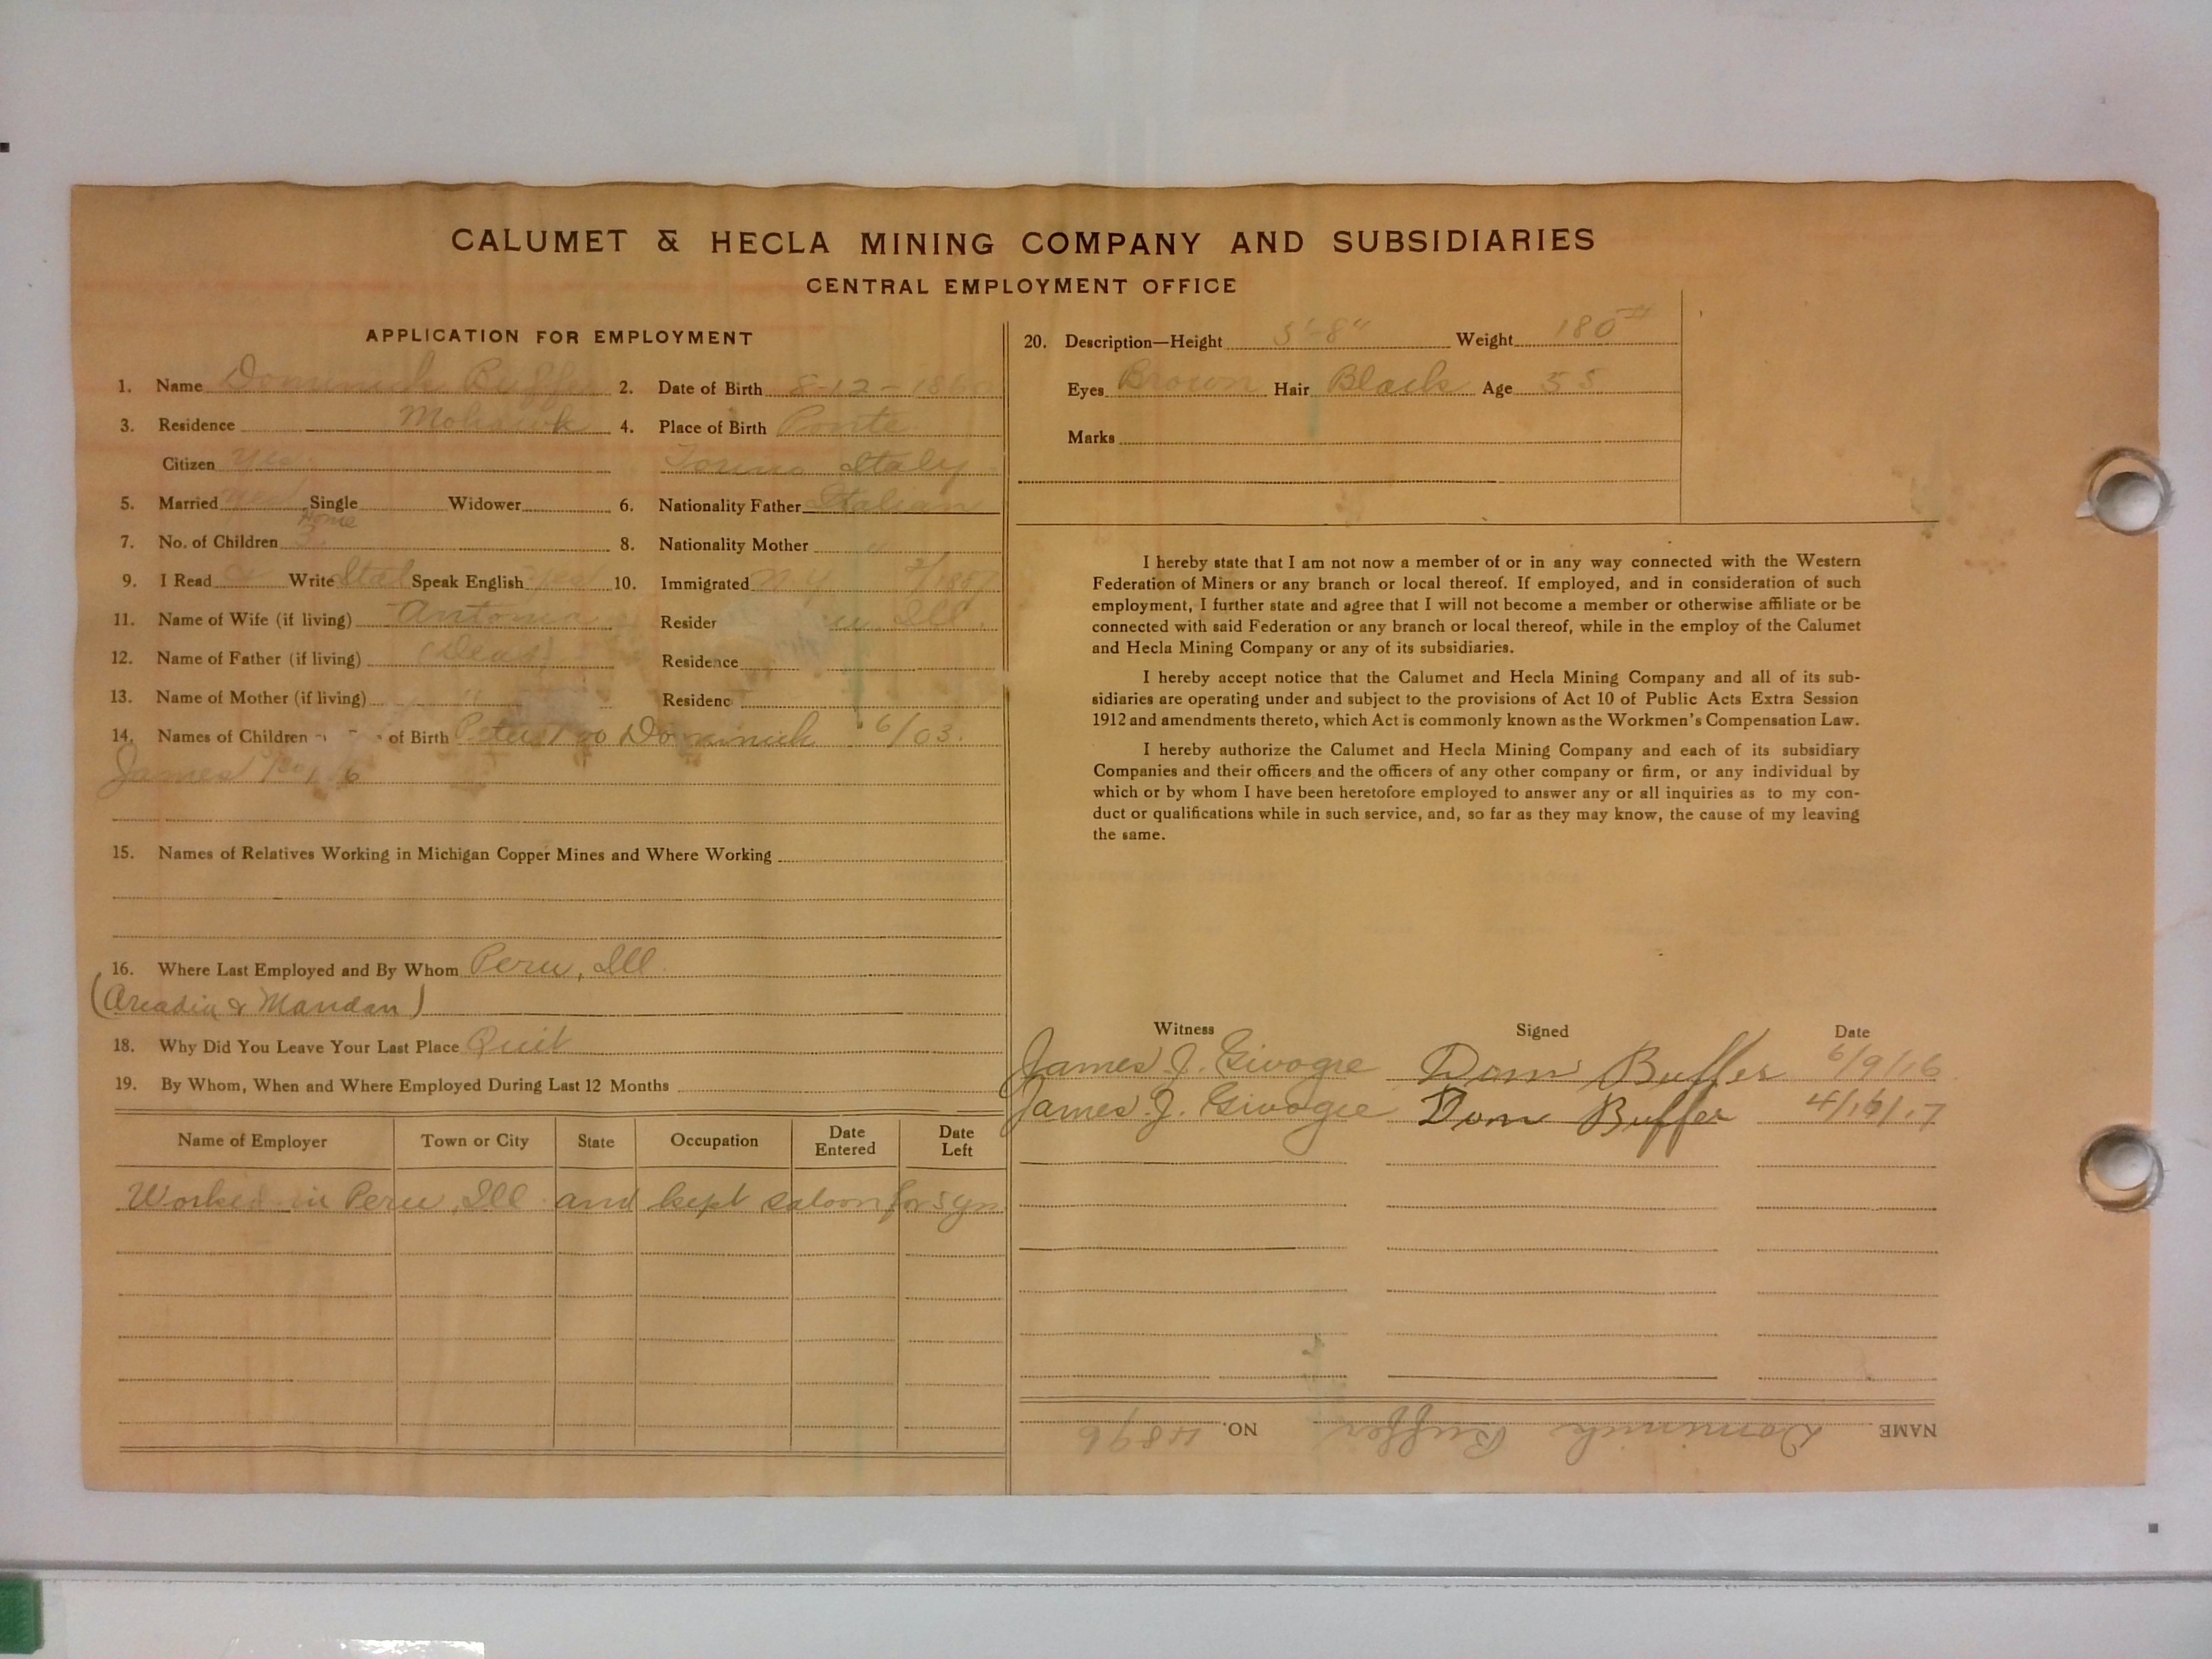 CALUMET & HECLA MINING COMPANY AND SUBSIDIARIES
CENTRAL EMPLOYMENT OFFICE
APPLICATION FOR EMPLOYMENT
1. Name Dominick Buffer 2. Date of Birth 8-12-186
3. Residence Mohawk 4. Place of Birth Ponte
Citizen Yes Torino Italy
5. Married Yes Single Widower 6. Nationality Father Italian
Home
7. No. of Children 3 8. Nationality Mother "
9. I Read Write Ital Speak English yes 10. Immigrated N.Y.
11. Name of Wife (if living) Antonia Resider Ill.
12. Name of Father (if living) (Dead) Residence
13. Name of Mother (if living) " Residenc
14. Names of Children of Birth Peter Dominick 6/03.
James 6
15. Names of Relatives Working in Michigan Copper Mines and Where Working
16. Where Last Employed and By Whom Peru, Ill.
(Arcadia & Mandan)
18. Why Did You Leave Your Last Place Quit
19. By Whom, When and Where Employed During Last 12 Months
Name of Employer Town or City State Occupation Date Entered Date Left
Worked in Peru, Ill and kept saloon for 5 yrs.
20. Description—Height 5'-8" Weight 180
Eyes Brown Hair Black Age 55
Marks
I hereby state that I am not now a member of or in any way connected with the Western
Federation of Miners or any branch or local thereof. If employed, and in consideration of such
employment, I further state and agree that I will not become a member or otherwise affiliate or be
connected with said Federation or any branch or local thereof, while in the employ of the Calumet
and Hecla Mining Company or any of its subsidiaries.
I hereby accept notice that the Calumet and Hecla Mining Company and all of its sub-
sidiaries are operating under and subject to the provisions of Act 10 of Public Acts Extra Session
1912 and amendments thereto, which Act is commonly known as the Workmen's Compensation Law.
I hereby authorize the Calumet and Hecla Mining Company and each of its subsidiary
Companies and their officers and the officers of any other company or firm, or any individual by
which or by whom I have been heretofore employed to answer any or all inquiries as to my con-
duct or qualifications while in such service, and, so far as they may know, the cause of my leaving
the same.
Witness Signed Date
James J. Givogre Dom Buffer 6/9/16
James J. Givogre Dom Buffer 4/16/17
NAME Dominick Buffer NO. 4896